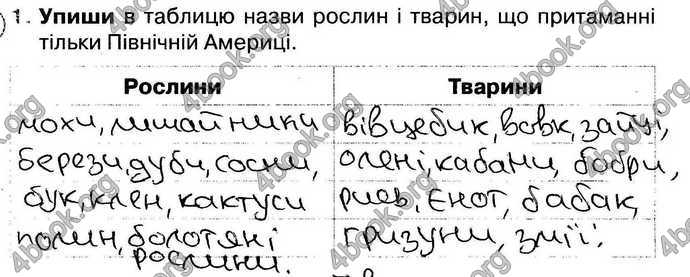 1. Упиши в таблицю назви рослин і тварин, що притаманні
тільки Північній Америці.
Рослини Тварини
мохи, лишайники вівцебик, вовк, зайці,
берези, дуби, сосни, олені, кабани, бобри,
бук, клен, кактуси рись, єнот, бабак,
полин, болотяні гризуни, змії.
рослини.
4book.org